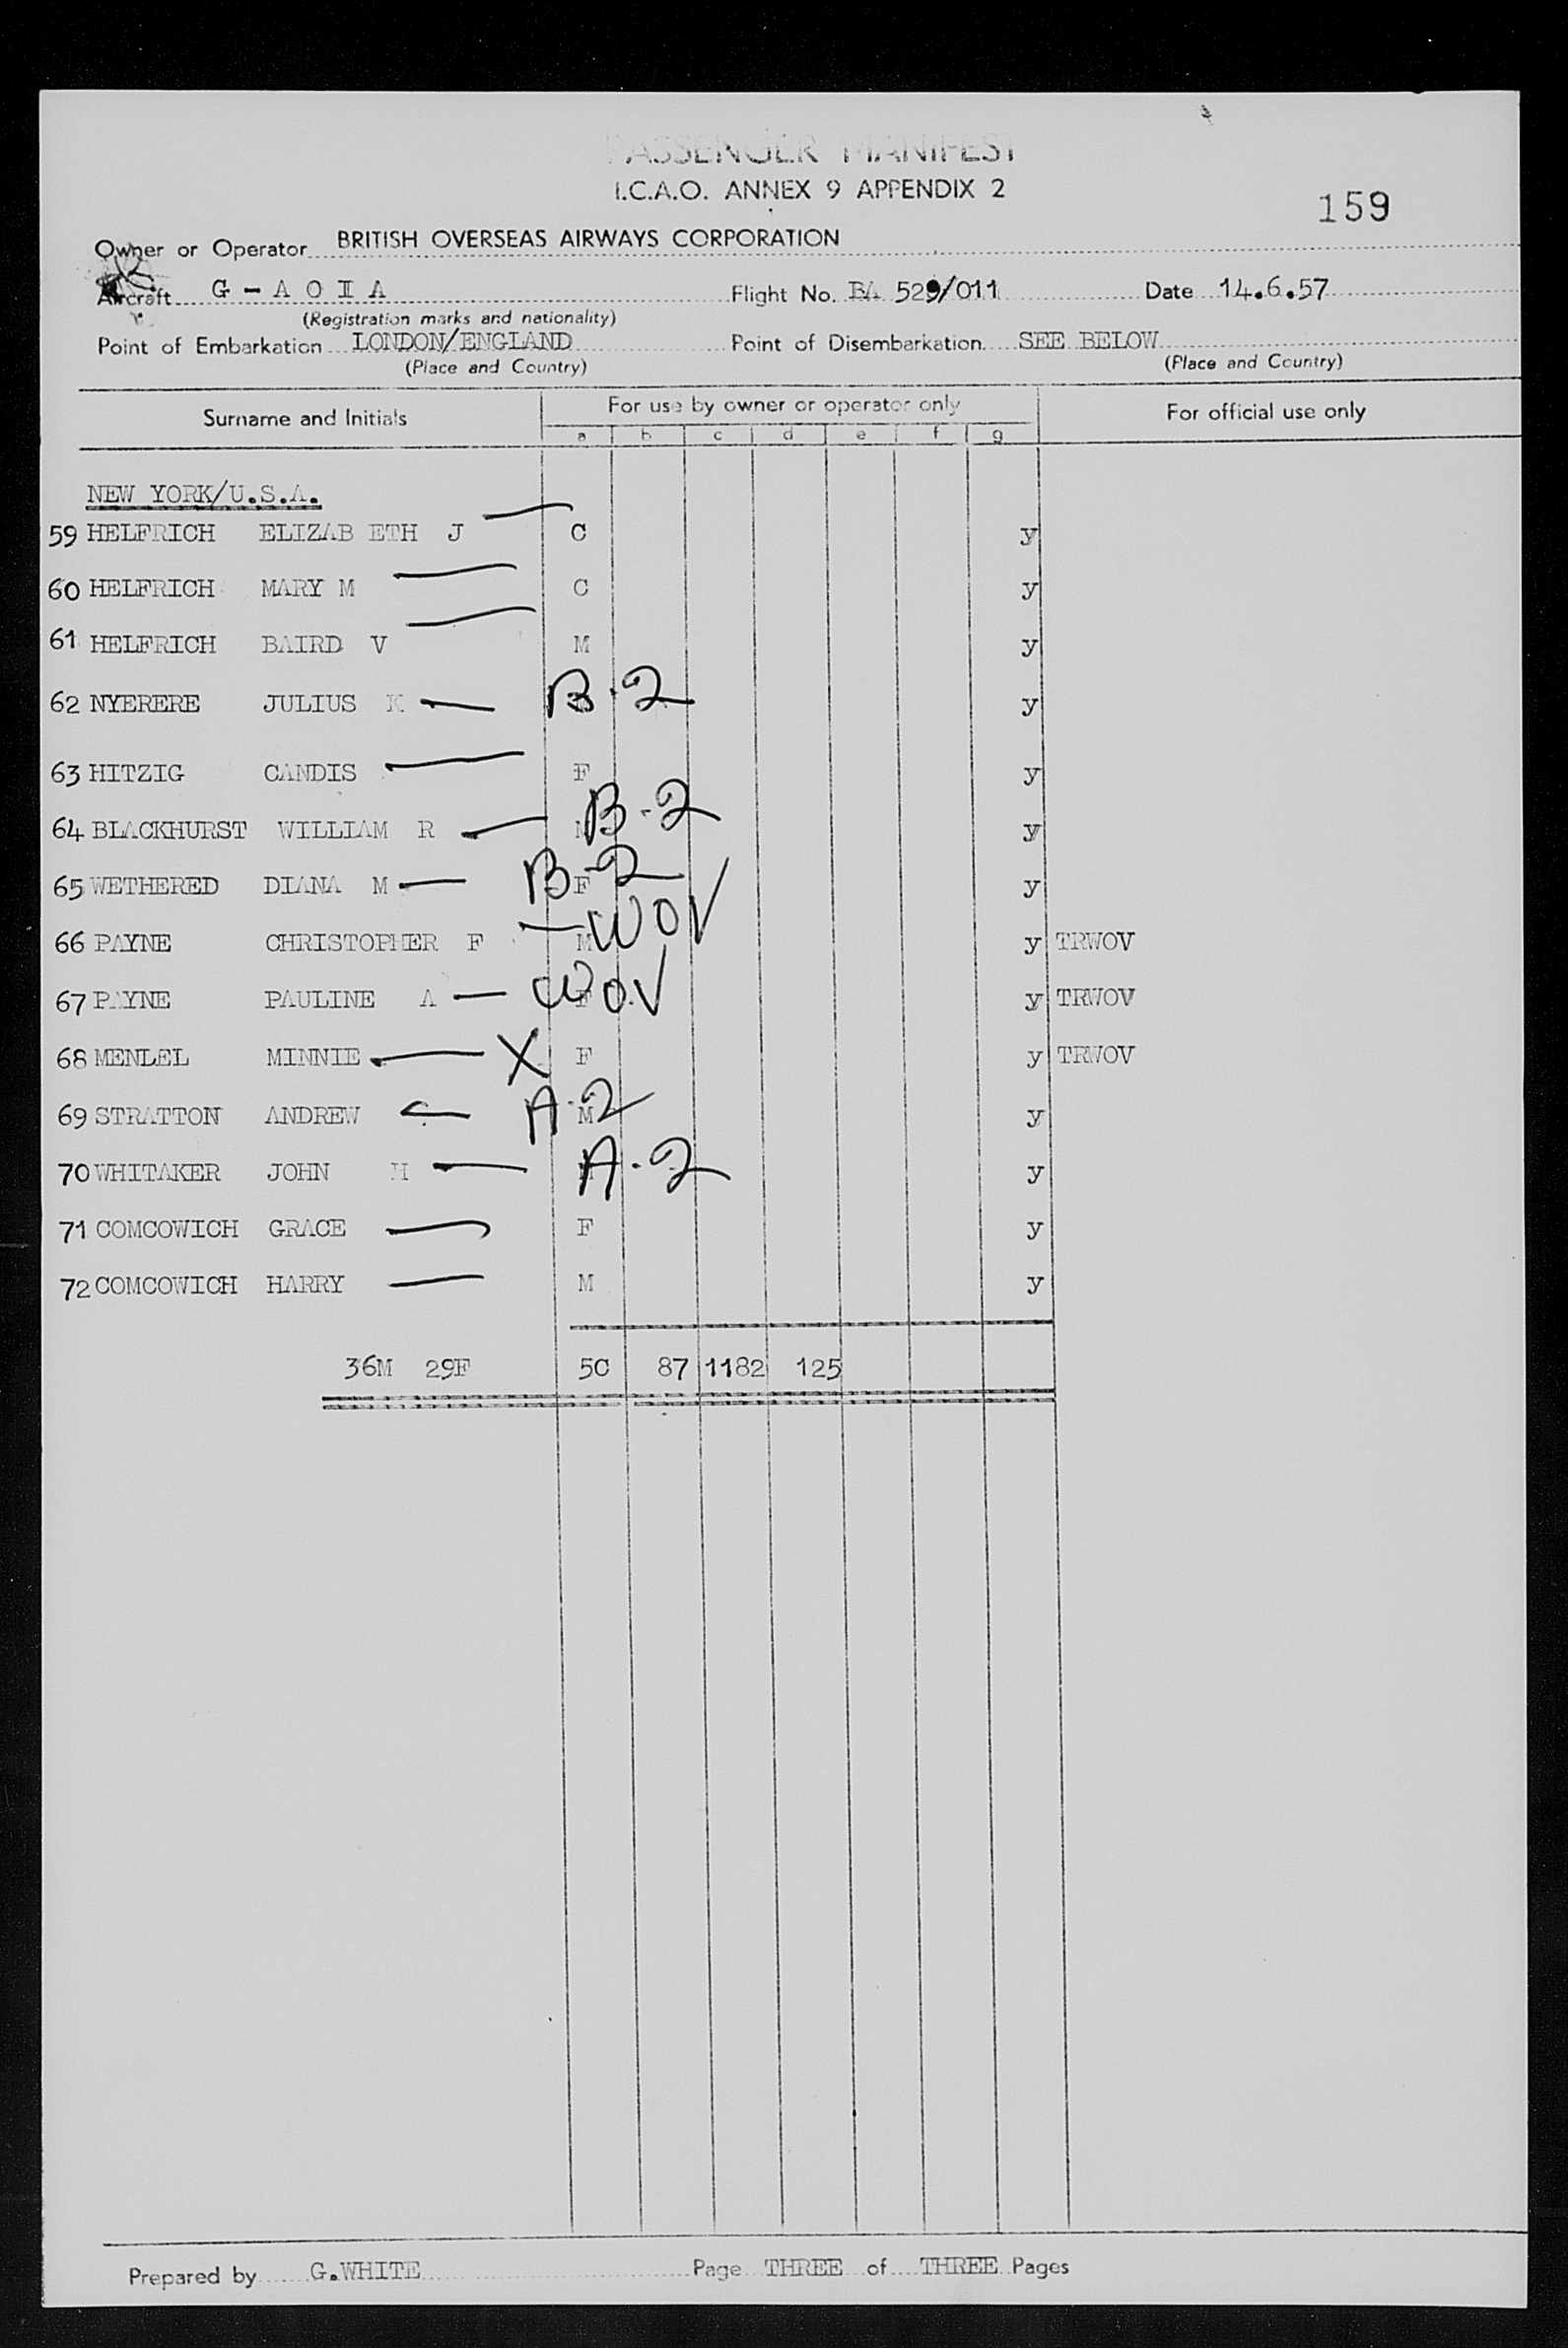 PASSENGER MANIFEST
I.C.A.O. ANNEX 9 APPENDIX 2
159
Owner or Operator BRITISH OVERSEAS AIRWAYS CORPORATION
Aircraft G - A O I A Flight No. BA 529/011 Date 14.6.57
(Registration marks and nationality)
Point of Embarkation LONDON/ENGLAND Point of Disembarkation SEE BELOW
(Place and Country) (Place and Country)
Surname and Initials For use by owner or operator only For official use only
a b c d e f g
NEW YORK/U.S.A.
59 HELFRICH ELIZAB ETH J C y
60 HELFRICH MARY M C y
61 HELFRICH BAIRD V M y
62 NYERERE JULIUS K B-2 y
63 HITZIG CANDIS F y
64 BLACKHURST WILLIAM R M B-2 y
65 WETHERED DIANA M B-2 F y
66 PAYNE CHRISTOPHER F M WOV y TRWOV
67 PAYNE PAULINE A WOV F y TRWOV
68 MENLEL MINNIE X F y TRWOV
69 STRATTON ANDREW A-2 M y
70 WHITAKER JOHN H A-2 y
71 COMCOWICH GRACE F y
72 COMCOWICH HARRY M y
36M 29F 5C 87 1182 125
Prepared by G.WHITE Page THREE of THREE Pages